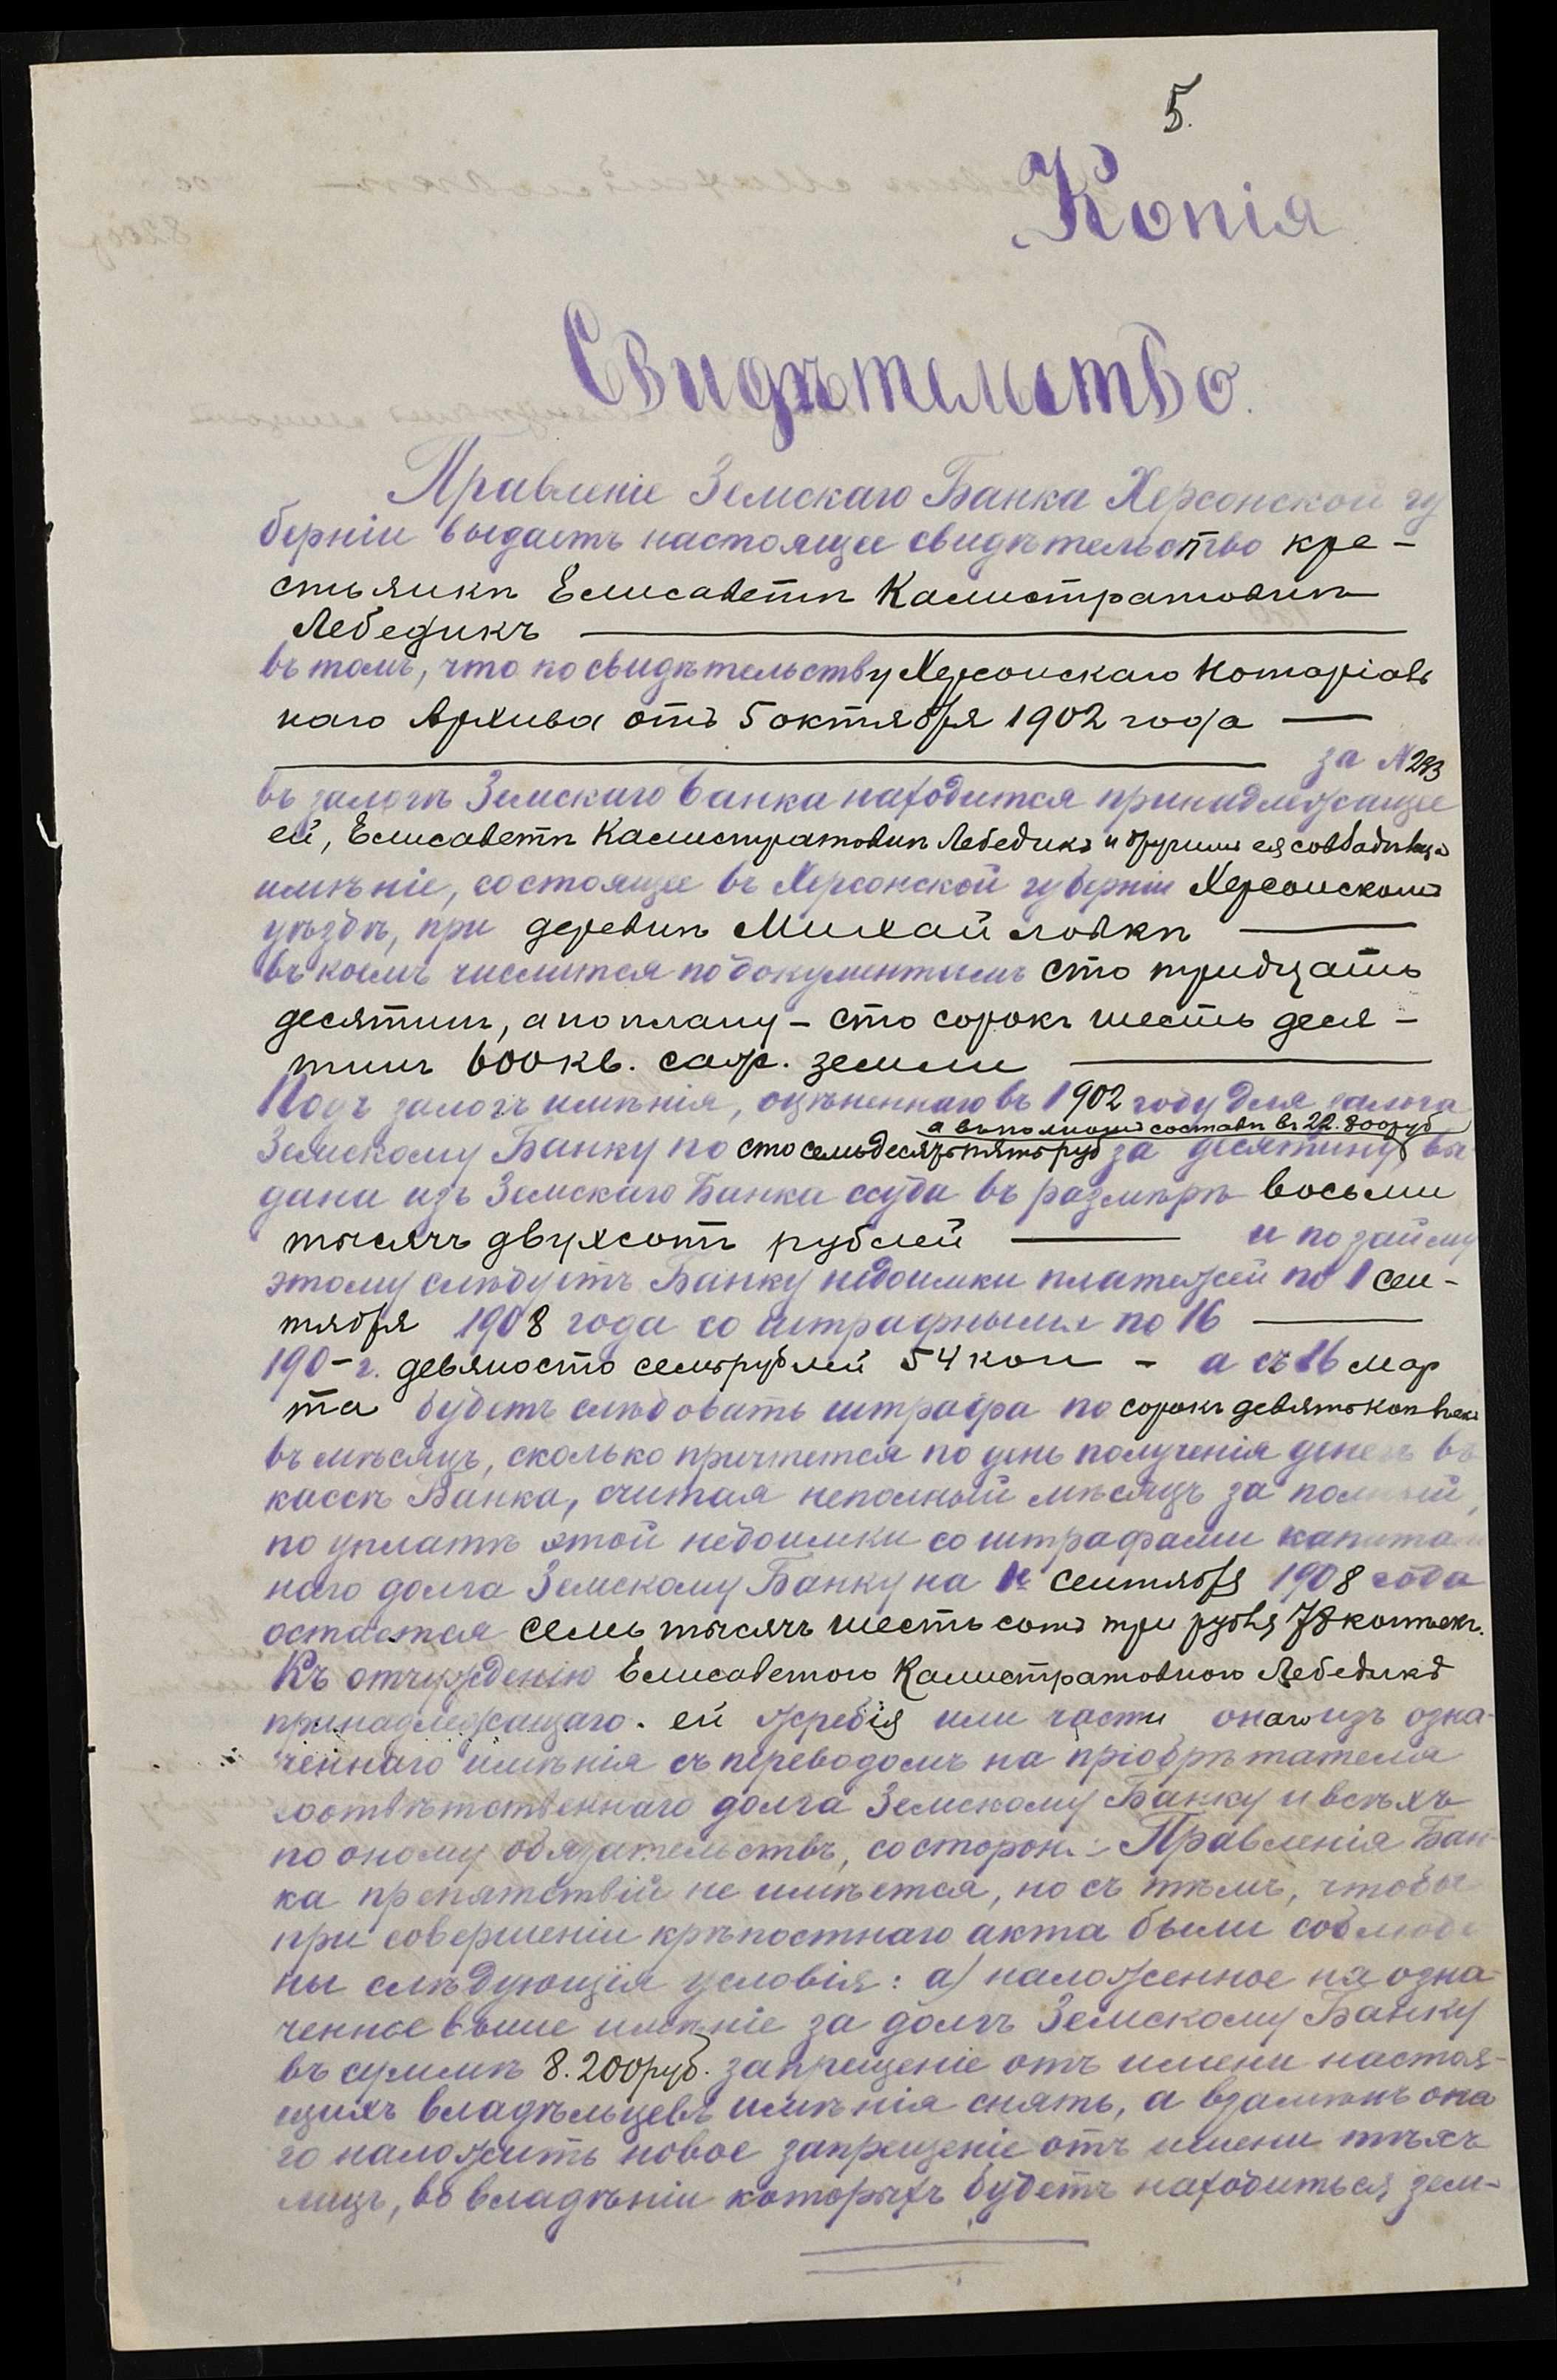 5.
Копія
Свидѣтельство.
Правленіе Земскаго Банка Херсонской гу
берніи выдаетъ настоящее свидѣтельство кре-
стьянкѣ Елисаветѣ Калистратовнѣ
Лебедикъ
въ томъ, что по свидѣтельству Херсонскаго Нотаріаль
наго Архива отъ 5 октября 1902 года
за № 293
въ залогѣ Земскаго Банка находится принадлежащее
ей, Елисаветѣ Калистратовнѣ Лебедикъ и другимъ ея совладѣльцамъ
имѣніе, состоящее въ Херсонской губерніи Херсонскомъ
уѣздѣ, при деревнѣ Михайловкѣ
въ коемъ числится по документамъ сто тридцать
десятинъ, а по плану - сто сорокъ шесть деся-
тинъ 600 кв. саж. земли
Подъ залогъ имѣнія, оцѣненнаго въ 1902 году для залога
а въ полномъ составѣ въ 22.800 руб
Земскому Банку по сто семьдесятъ пять руб за десятину, вы
дана изъ Земскаго Банка ссуда въ размѣрѣ восьми
тысячъ двухсотъ рублей и по займу
этому слѣдуетъ Банку недоимки платежей по 1 сен-
тября 1908 года со штрафными по 16
190-г. девяносто семь рублей 54 коп - а съ 16 мар
та будетъ слѣдовать штрафа по сорокъ девять копѣекъ
въ мѣсяцъ, сколько причтется по день полученія денегъ въ
кассѣ Банка, считая неполный мѣсяцъ за полный,
по уплатѣ этой недоимки со штрафами капиталь
наго долга Земскому Банку на 1е сентября 1908 года
остается семь тысячъ шестьсотъ три рубля 78 копѣекъ.
Къ отчужденію Елисаветою Калистратовною Лебедикъ
принадлежащаго. ей жребія или части онаго изъ озна-
ченнаго имѣнія съ переводомъ на пріобрѣтателя
соотвѣтственнаго долга Земскому Банку и всѣхъ
по оному обязательствъ, со стороны Правленія Бан-
ка препятствій не имѣется, но съ тѣмъ, чтобы
при совершеніи крѣпостнаго акта были соблюде
ны слѣдующія условія: а) наложенное на озна-
ченное выше имѣніе за долгъ Земскому Банку
въ суммѣ 8.200 руб. запрещеніе отъ имени настоя-
щихъ владѣльцевъ имѣнія снять, а взамѣнъ она
го наложить новое запрещеніе отъ имени тѣхъ
лицъ, во владѣніи которыхъ будетъ находиться зем-